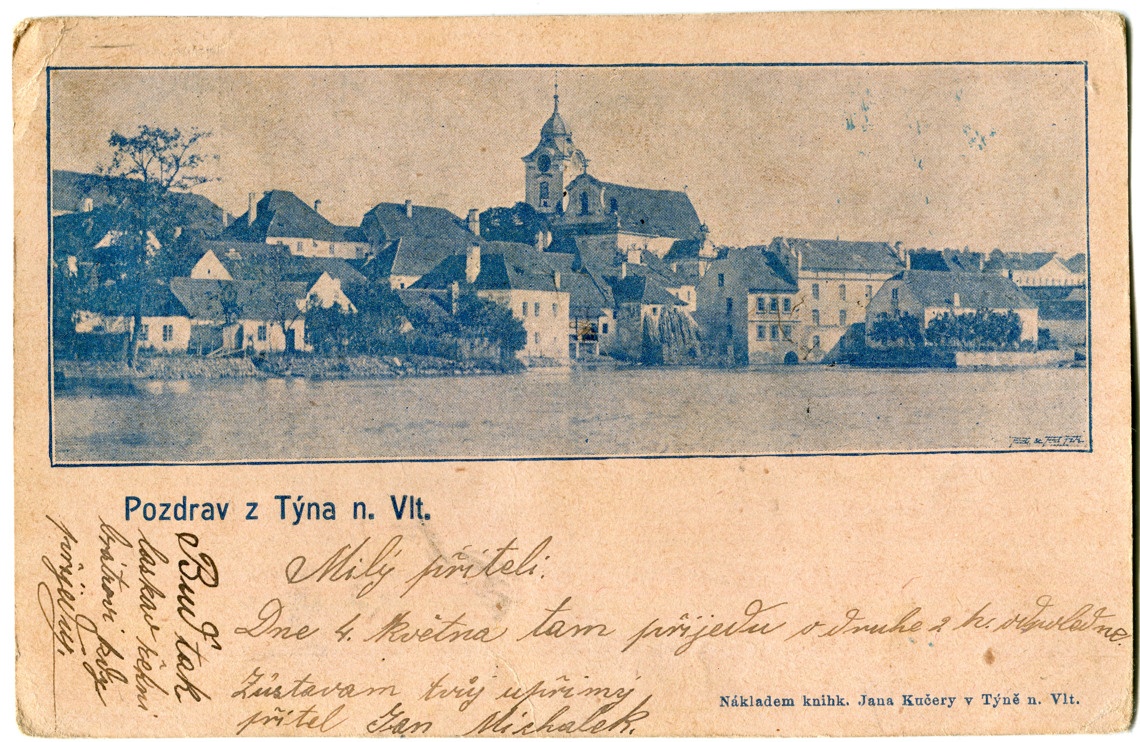 Pozdrav z Týna n. Vlt.
Milý příteli.
Dne 4. května tam přijedu o druhe 2 h. odpoledne.
Zůstavam tvůj upřimý
přitel Jan Michalek.
Buď tak
laskav řekni
bátovi kdy
přijedu.
Nákladem knihk. Jana Kučery v Týně n. Vlt.